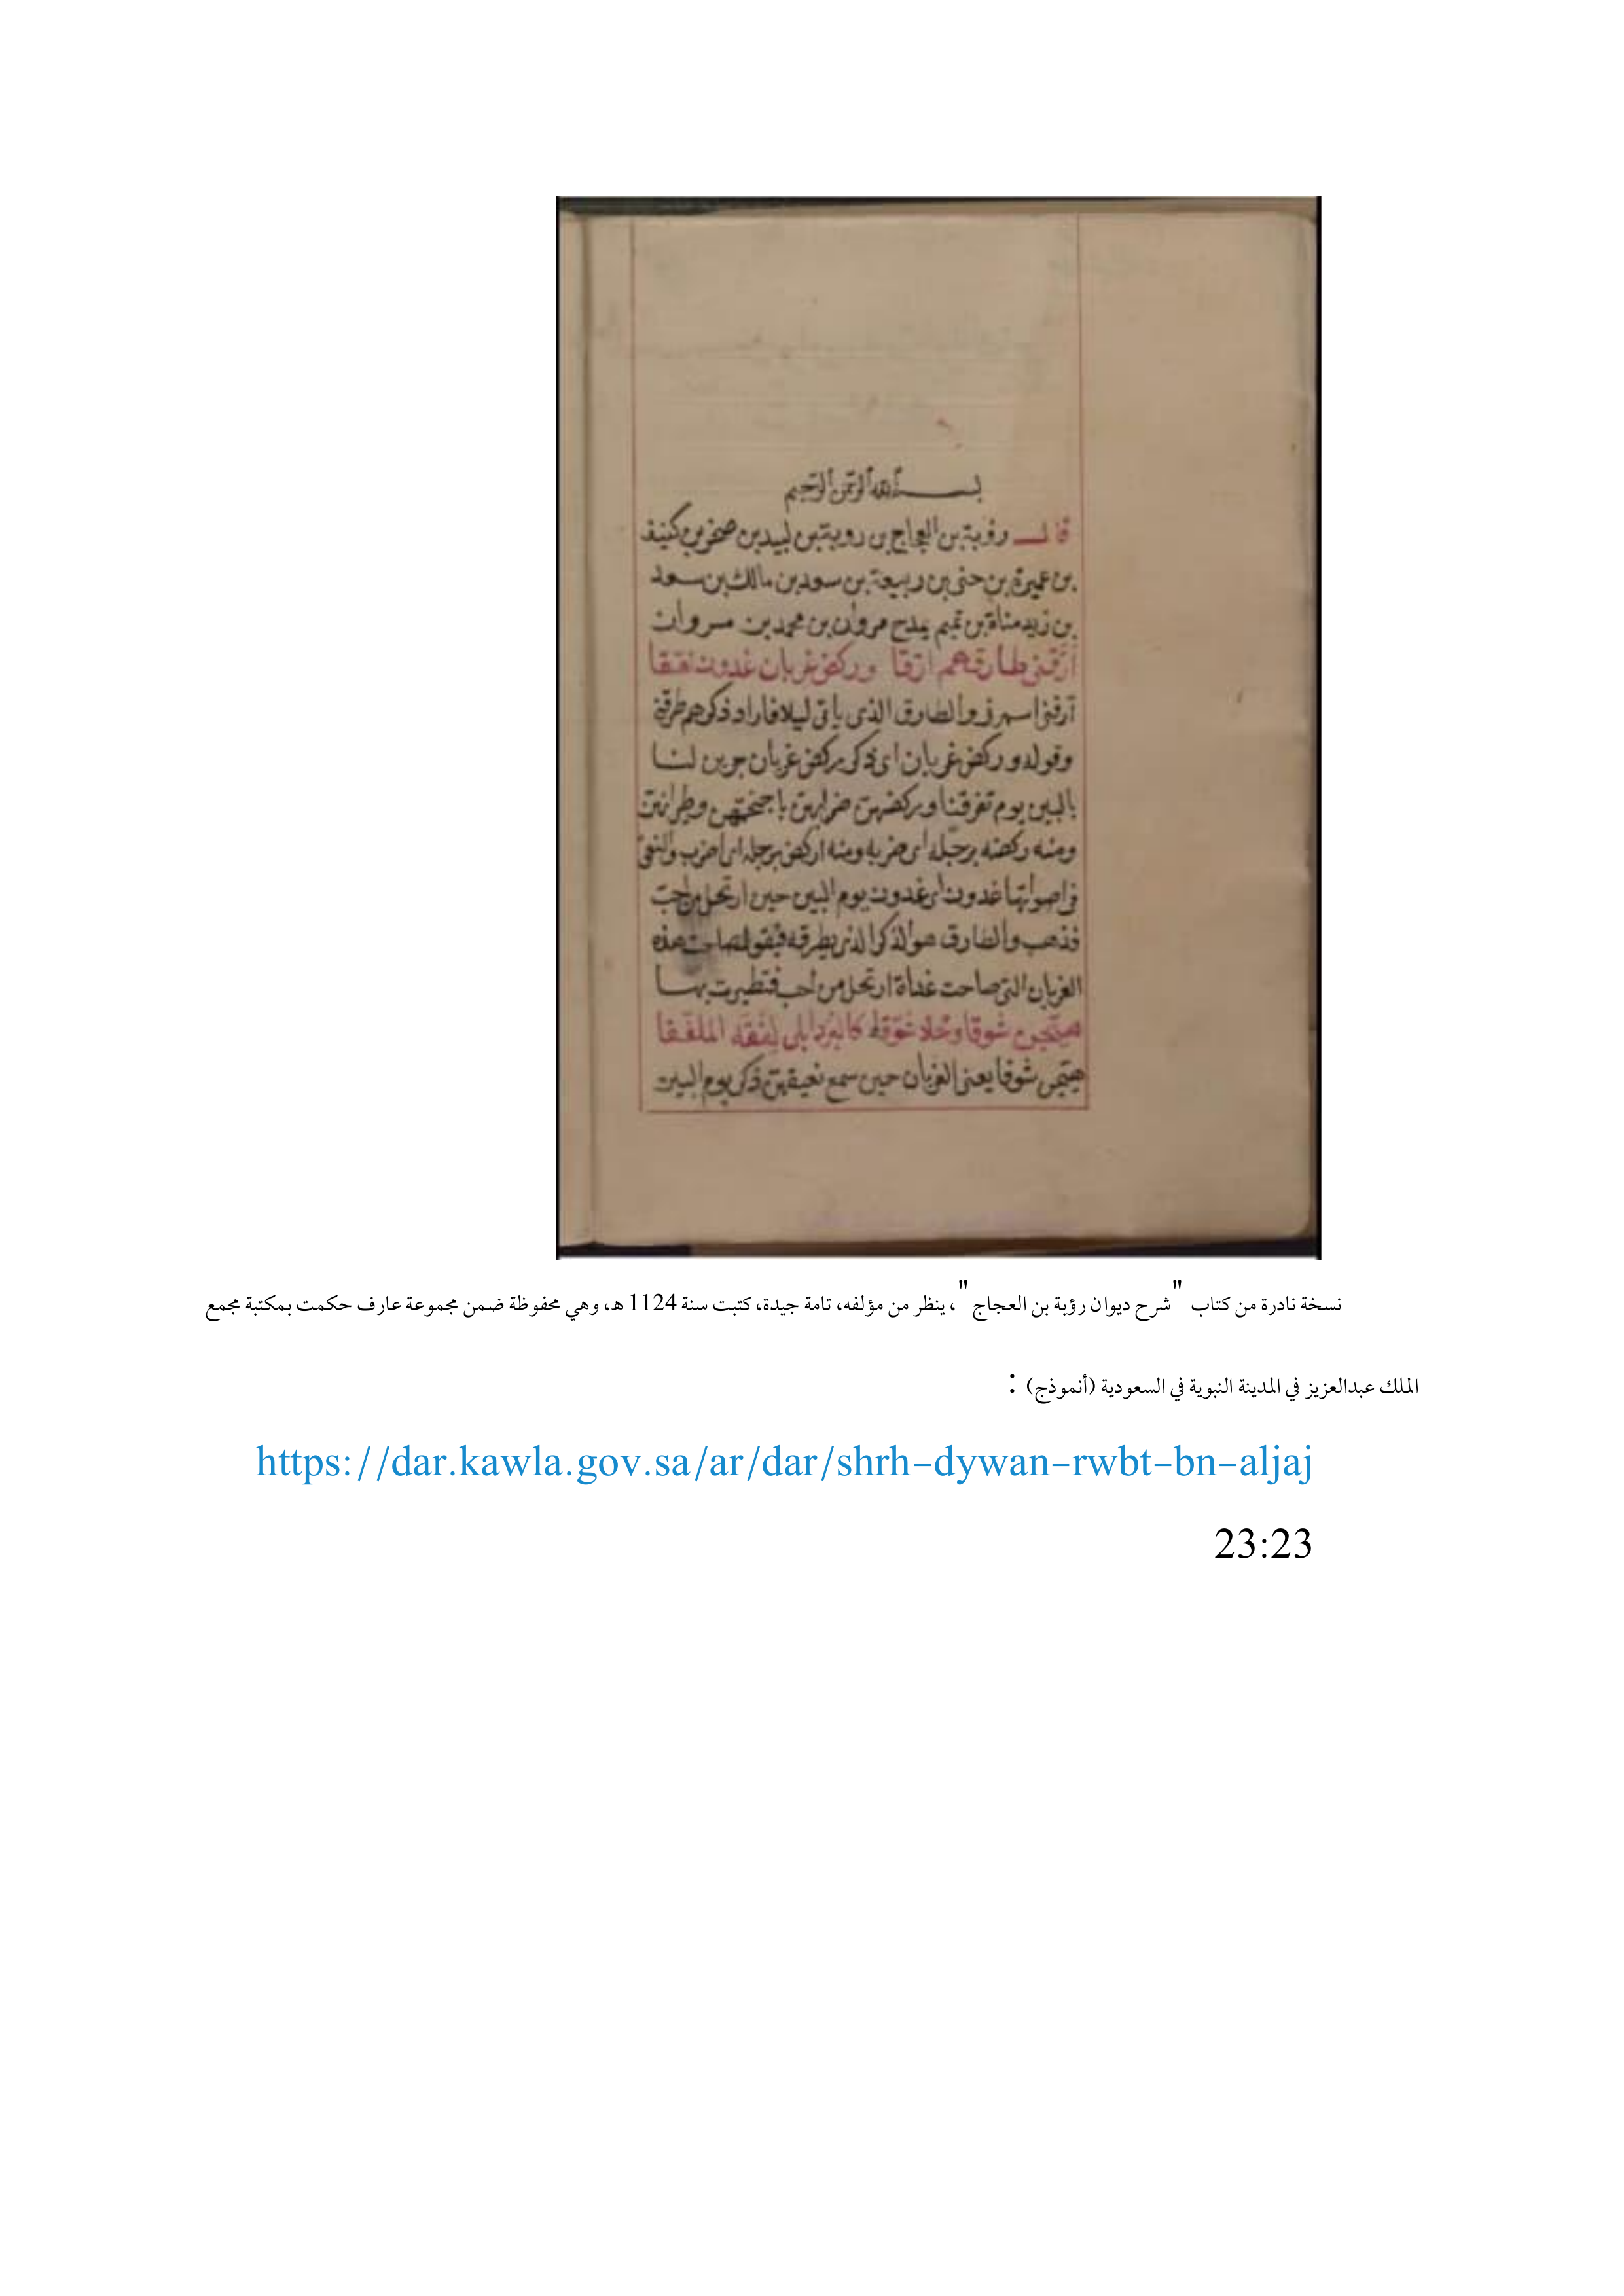 بسم الله الرحمن الرحيم
قال رؤبة بن العجاج بن روبة بن لبيد بن صخر بن كنيف
بن عميرة بن حنى بن ربيعة بن سعد بن مالك بن سعد
بن زيد مناة بن تميم يمدح مروان بن محمد بن مروان
أرقنى طارق هم ارقا وركض غربان غدون نغقا
أرقنى اسهرنى والطارق الذى ياتى ليلا فاراد ذكر هم طرقه
وقوله وركض غربان اى ذكر ركض غربان جرين لنا
بالبين يوم تفرقنا وركضهن ضرابهن باجنحتهن وطيرانهن
ومنه ركضه برجله اى ضربه ومنه اركض برجلك اى اضرب والنغق
فى اصواتها غدون اى غدون يوم البين حين ارتحل من احب
فذهب والطارق هو الذكر الذى يطرقه فيقول صاحت هذه
الغربان التى صاحت غداة ارتحل من احب فتطيرت بها
هيجن شوقا كالبرد ابلى لفقه الملفقا
هيجن شوقا يعنى الغربان حين سمع نعيقهن ذكر يوم البين
نسخة نادرة من كتاب "شرح ديوان رؤبة بن العجاج"، ينظر من مؤلفه، تامة جيدة، كتبت سنة 1124 هـ، وهي محفوظة ضمن مجموعة عارف حكمت بمكتبة مجمع
الملك عبدالعزيز في المدينة النبوية في السعودية (أنموذج) :
https://dar.kawla.gov.sa/ar/dar/shrh-dywan-rwbt-bn-aljaj
23:23